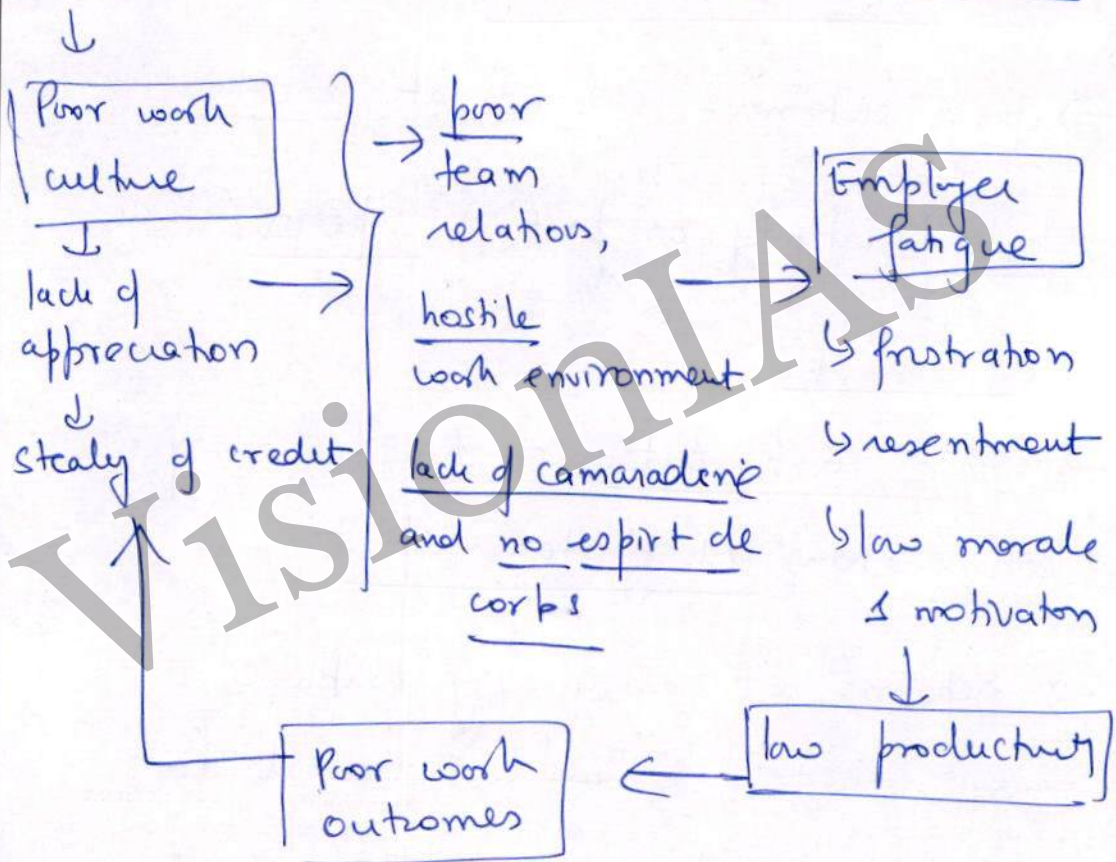 Poor work
culture
lack of
appreciation
stealy of credit
poor
team
relations,
hostile
work environment
lack of camaraderie
and no espirt de
corps
Employee
fatigue
frustration
resentment
low morale
& motivaton
low productivity
Poor work
outcomes
VisionIAS